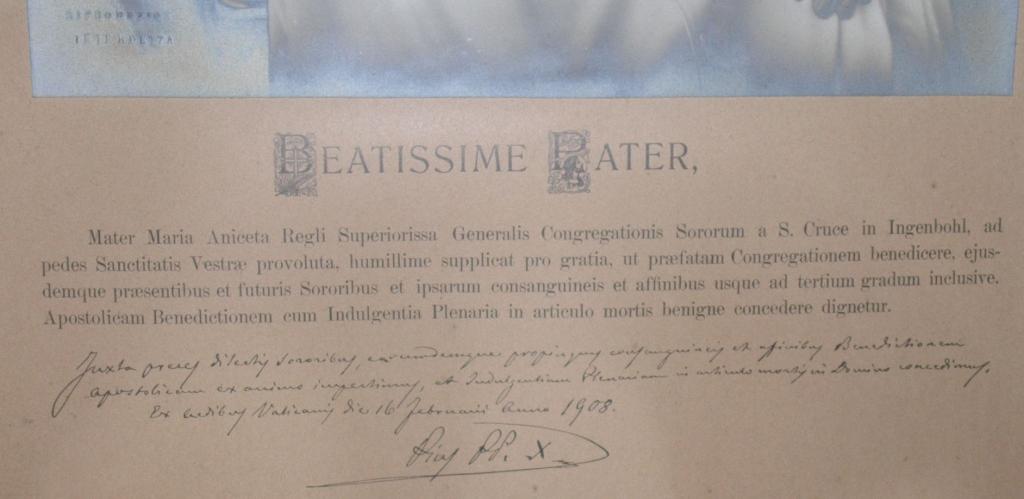 BEATISSIME PATER,
Mater Maria Aniceta Regli Superiorissa Generalis Congregationis Sororum a S. Cruce in Ingenbohl, ad
pedes Sanctitatis Vestræ provoluta, humillime supplicat pro gratia, ut præfatam Congregationem benedicere, ejus-
demque præsentibus et futuris Sororibus et ipsarum consanguineis et affinibus usque ad tertium gradum inclusive,
Apostolicam Benedictionem cum Indulgentia Plenaria in articulo mortis benigne concedere dignetur.
Juxta preces dilectis Sororibus, earumdemque propinquis consanguineis et affinibus Benedictionem
Apostolicam ex animo impertimus, et Indulgentiam Plenariam in articulo mortis in Domino concedimus.
Ex aedibus Vaticanis die 16 Februarii Anno 1908.
Pius PP. X